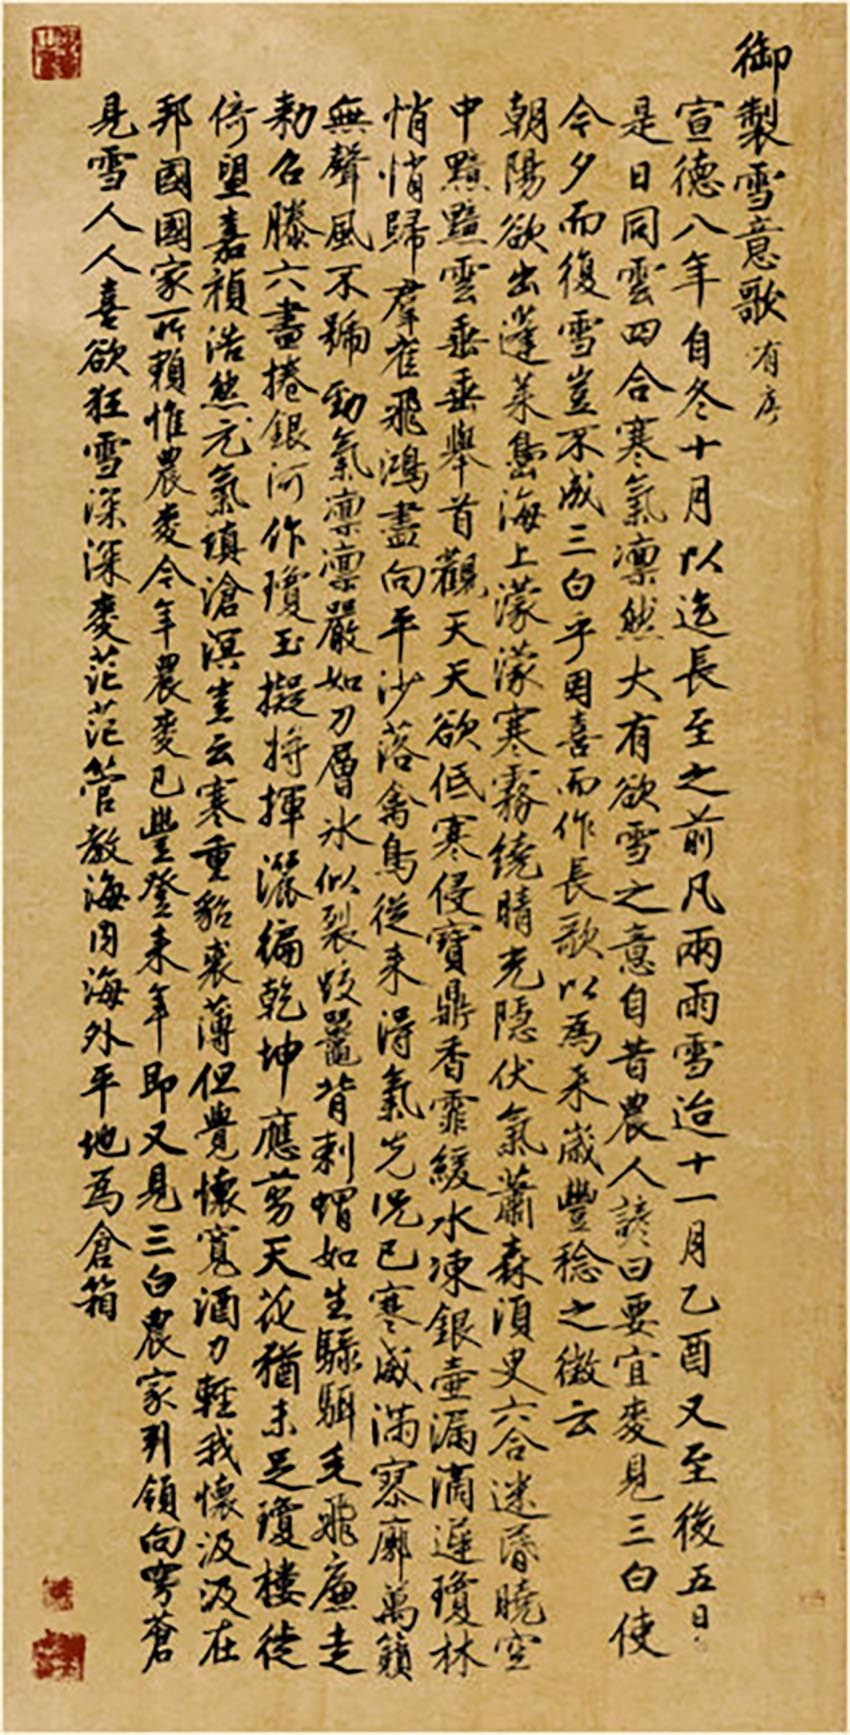 御製雪意歌 有序
宣德八年自冬十月以迄長至之前凡兩雨雪迨十一月乙酉又至後五日
是日同雲四合寒氣凛然大有欲雪之意自昔農人諺曰要宜麥見三白使
今夕而復雪豈不成三白乎因喜而作長歌以為來歲豐稔之徵云
朝陽欲出蓬萊島海上濛濛寒霧繞晴光隱伏氣蕭森湏臾六合迷昏曉空
中黯黯雲垂垂舉首觀天天欲低寒侵寶鼎香霏緩水凍銀壺漏滴遲瓊林
悄悄歸羣雀飛鴻盡向平沙落禽鳥從来得氣先况已寒威滿寥廓萬籟
無聲風不號勁氣凛凛嚴如刀層氷似裂蛟鼉背刺蝟如生騄駬毛飛廉走
勅召滕六盡捲銀河作瓊玉擬將揮灑徧乾坤應剪天花猶未足瓊樓徙
倚盟嘉禎浩然元氣填滄溟豈云寒重貂裘薄但覺懷寬酒力輕我懷汲汲在
邦國國家所賴惟農麥今年農麥已豐登来年即又見三白農家引領向穹蒼
見雪人人喜欲狂雪深深麥茫茫管教海内海外平地為倉箱